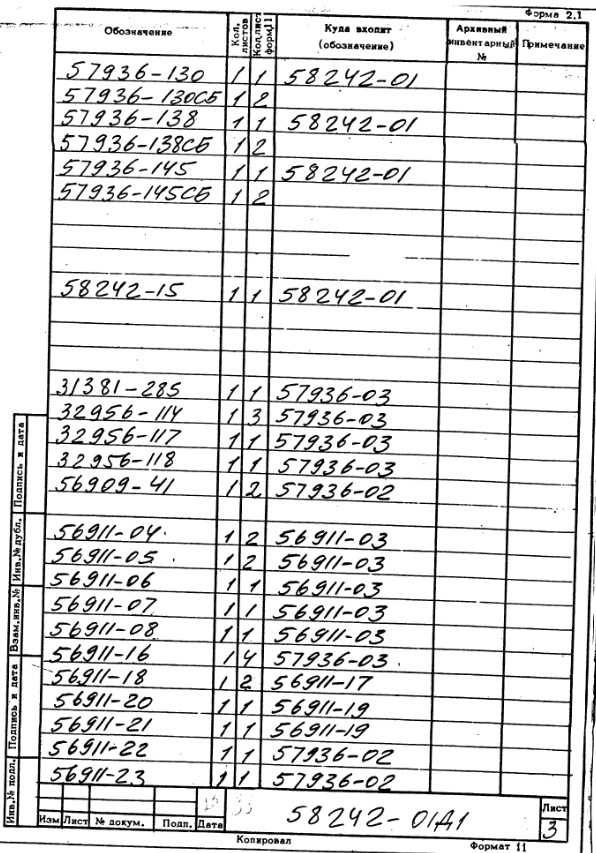 Форма 2.1
Обозначение Кол. листов Кол.лист форм.11 Куда входит (обозначение) Архивный инвентарный № Примечание
57936-130 1 1 58242-01
57936-130СБ 1 2
57936-138 1 1 58242-01
57936-138СБ 1 2
57936-145 1 1 58242-01
57936-145СБ 1 2
58242-15 1 1 58242-01
31381-285 1 1 57936-03
32956-114 1 3 57936-03
32956-117 1 1 57936-03
32956-118 1 1 57936-03
56909-41 1 2 57936-02
56911-04 1 2 56911-03
56911-05 1 2 56911-03
56911-06 1 1 56911-03
56911-07 1 1 56911-03
56911-08 1 1 56911-03
56911-16 1 4 57936-03
56911-18 1 2 56911-17
56911-20 1 1 56911-19
56911-21 1 1 56911-19
56911-22 1 1 57936-02
56911-23 1 1 57936-02
Подпись и дата
Инв.№ дубл.
Взам.инв.№
Подпись и дата
Инв.№ подл.
Изм Лист № докум. Подп. Дата
58242-01Д1
Лист
3
Копировал Формат 11